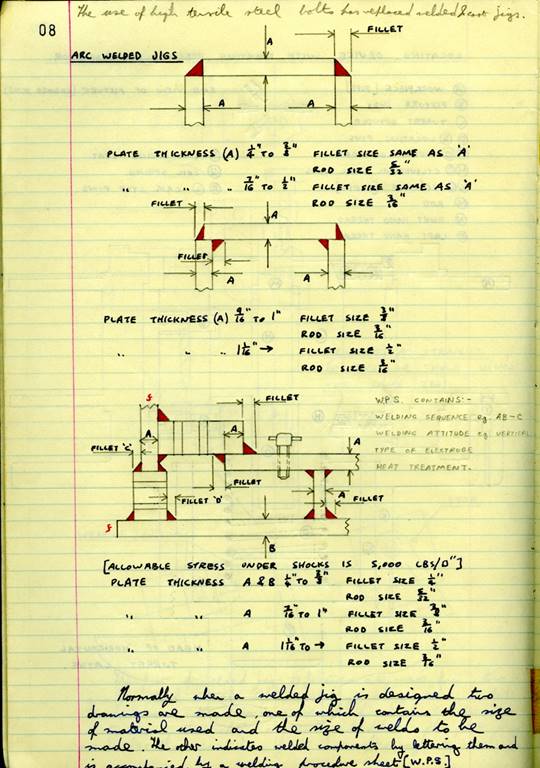 The use of high tensile steel bolts has replaced welded & cast jigs.
08
FILLET
ARC WELDED JIGS
A
A
A
PLATE THICKNESS (A) 1/4" TO 3/8" FILLET SIZE SAME AS 'A'
ROD SIZE 5/32"
" " " 7/16" TO 1/2" FILLET SIZE SAME AS 'A'
ROD SIZE 3/16"
FILLET
A
FILLET
A
A
PLATE THICKNESS (A) 9/16" TO 1" FILLET SIZE 3/8"
ROD SIZE 3/16"
" " " 1 1/16" → FILLET SIZE 1/2"
ROD SIZE 3/16"
FILLET
W.P.S. CONTAINS:-
WELDING SEQUENCE eg. AB-C
WELDING ATTITUDE eg. VERTICAL
TYPE OF ELECTRODE
HEAT TREATMENT.
A
A
A
FILLET 'C'
FILLET
FILLET 'D'
A
FILLET
B
[ALLOWABLE STRESS UNDER SHOCKS IS 5,000 LBS/□"]
PLATE THICKNESS A & B 1/4" TO 3/8" FILLET SIZE 1/4"
ROD SIZE 5/32"
" " A 7/16" TO 1" FILLET SIZE 3/8"
ROD SIZE 3/16"
" " A 1 1/16" TO → FILLET SIZE 1/2"
ROD SIZE 3/16"
Normally when a welded jig is designed two
drawings are made, one of which contains the size
of material used and the size of welds to be
made. The other indicates welded components by lettering them and
is accompanied by a welding procedure sheet [W.P.S]